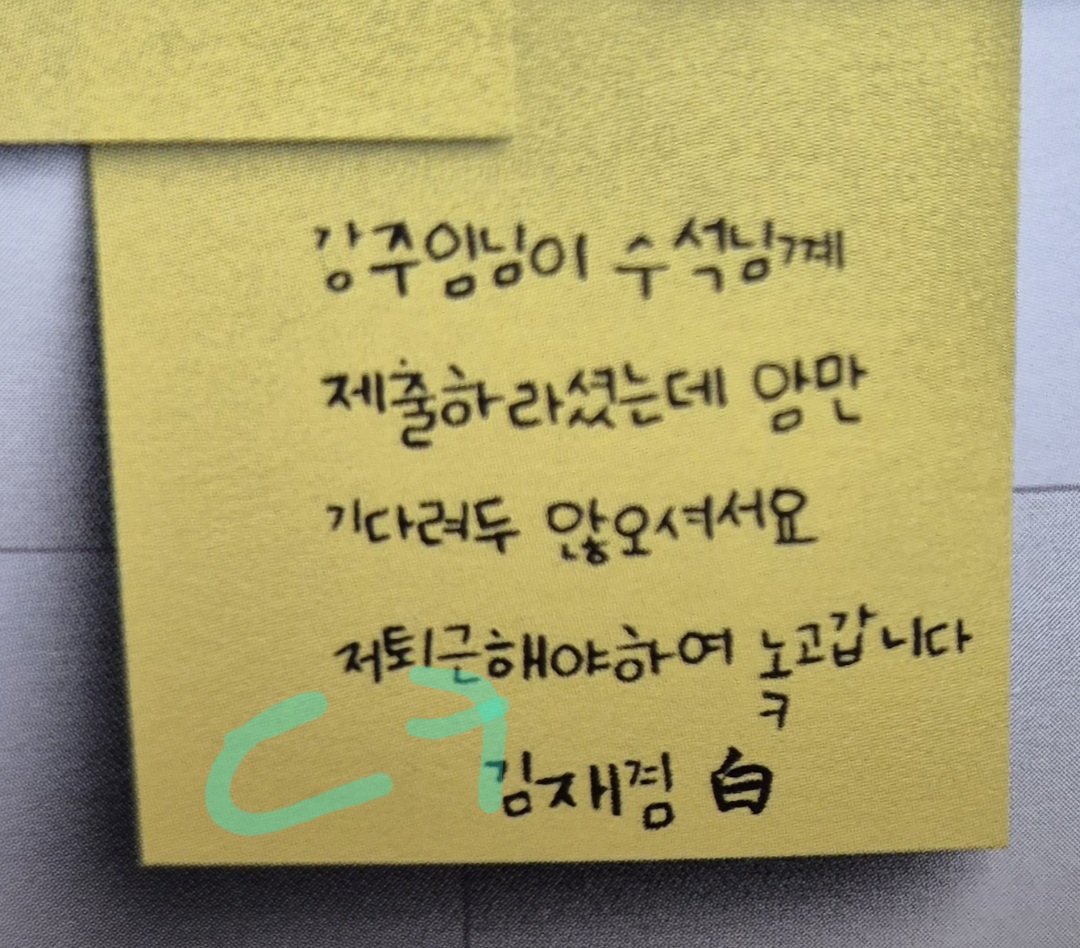 강주임님이 수석님꼐
제출하라셨는데 암만
기다려두 않오셔서요
저퇴근해야하여 놐고갑니다
김재겸 白